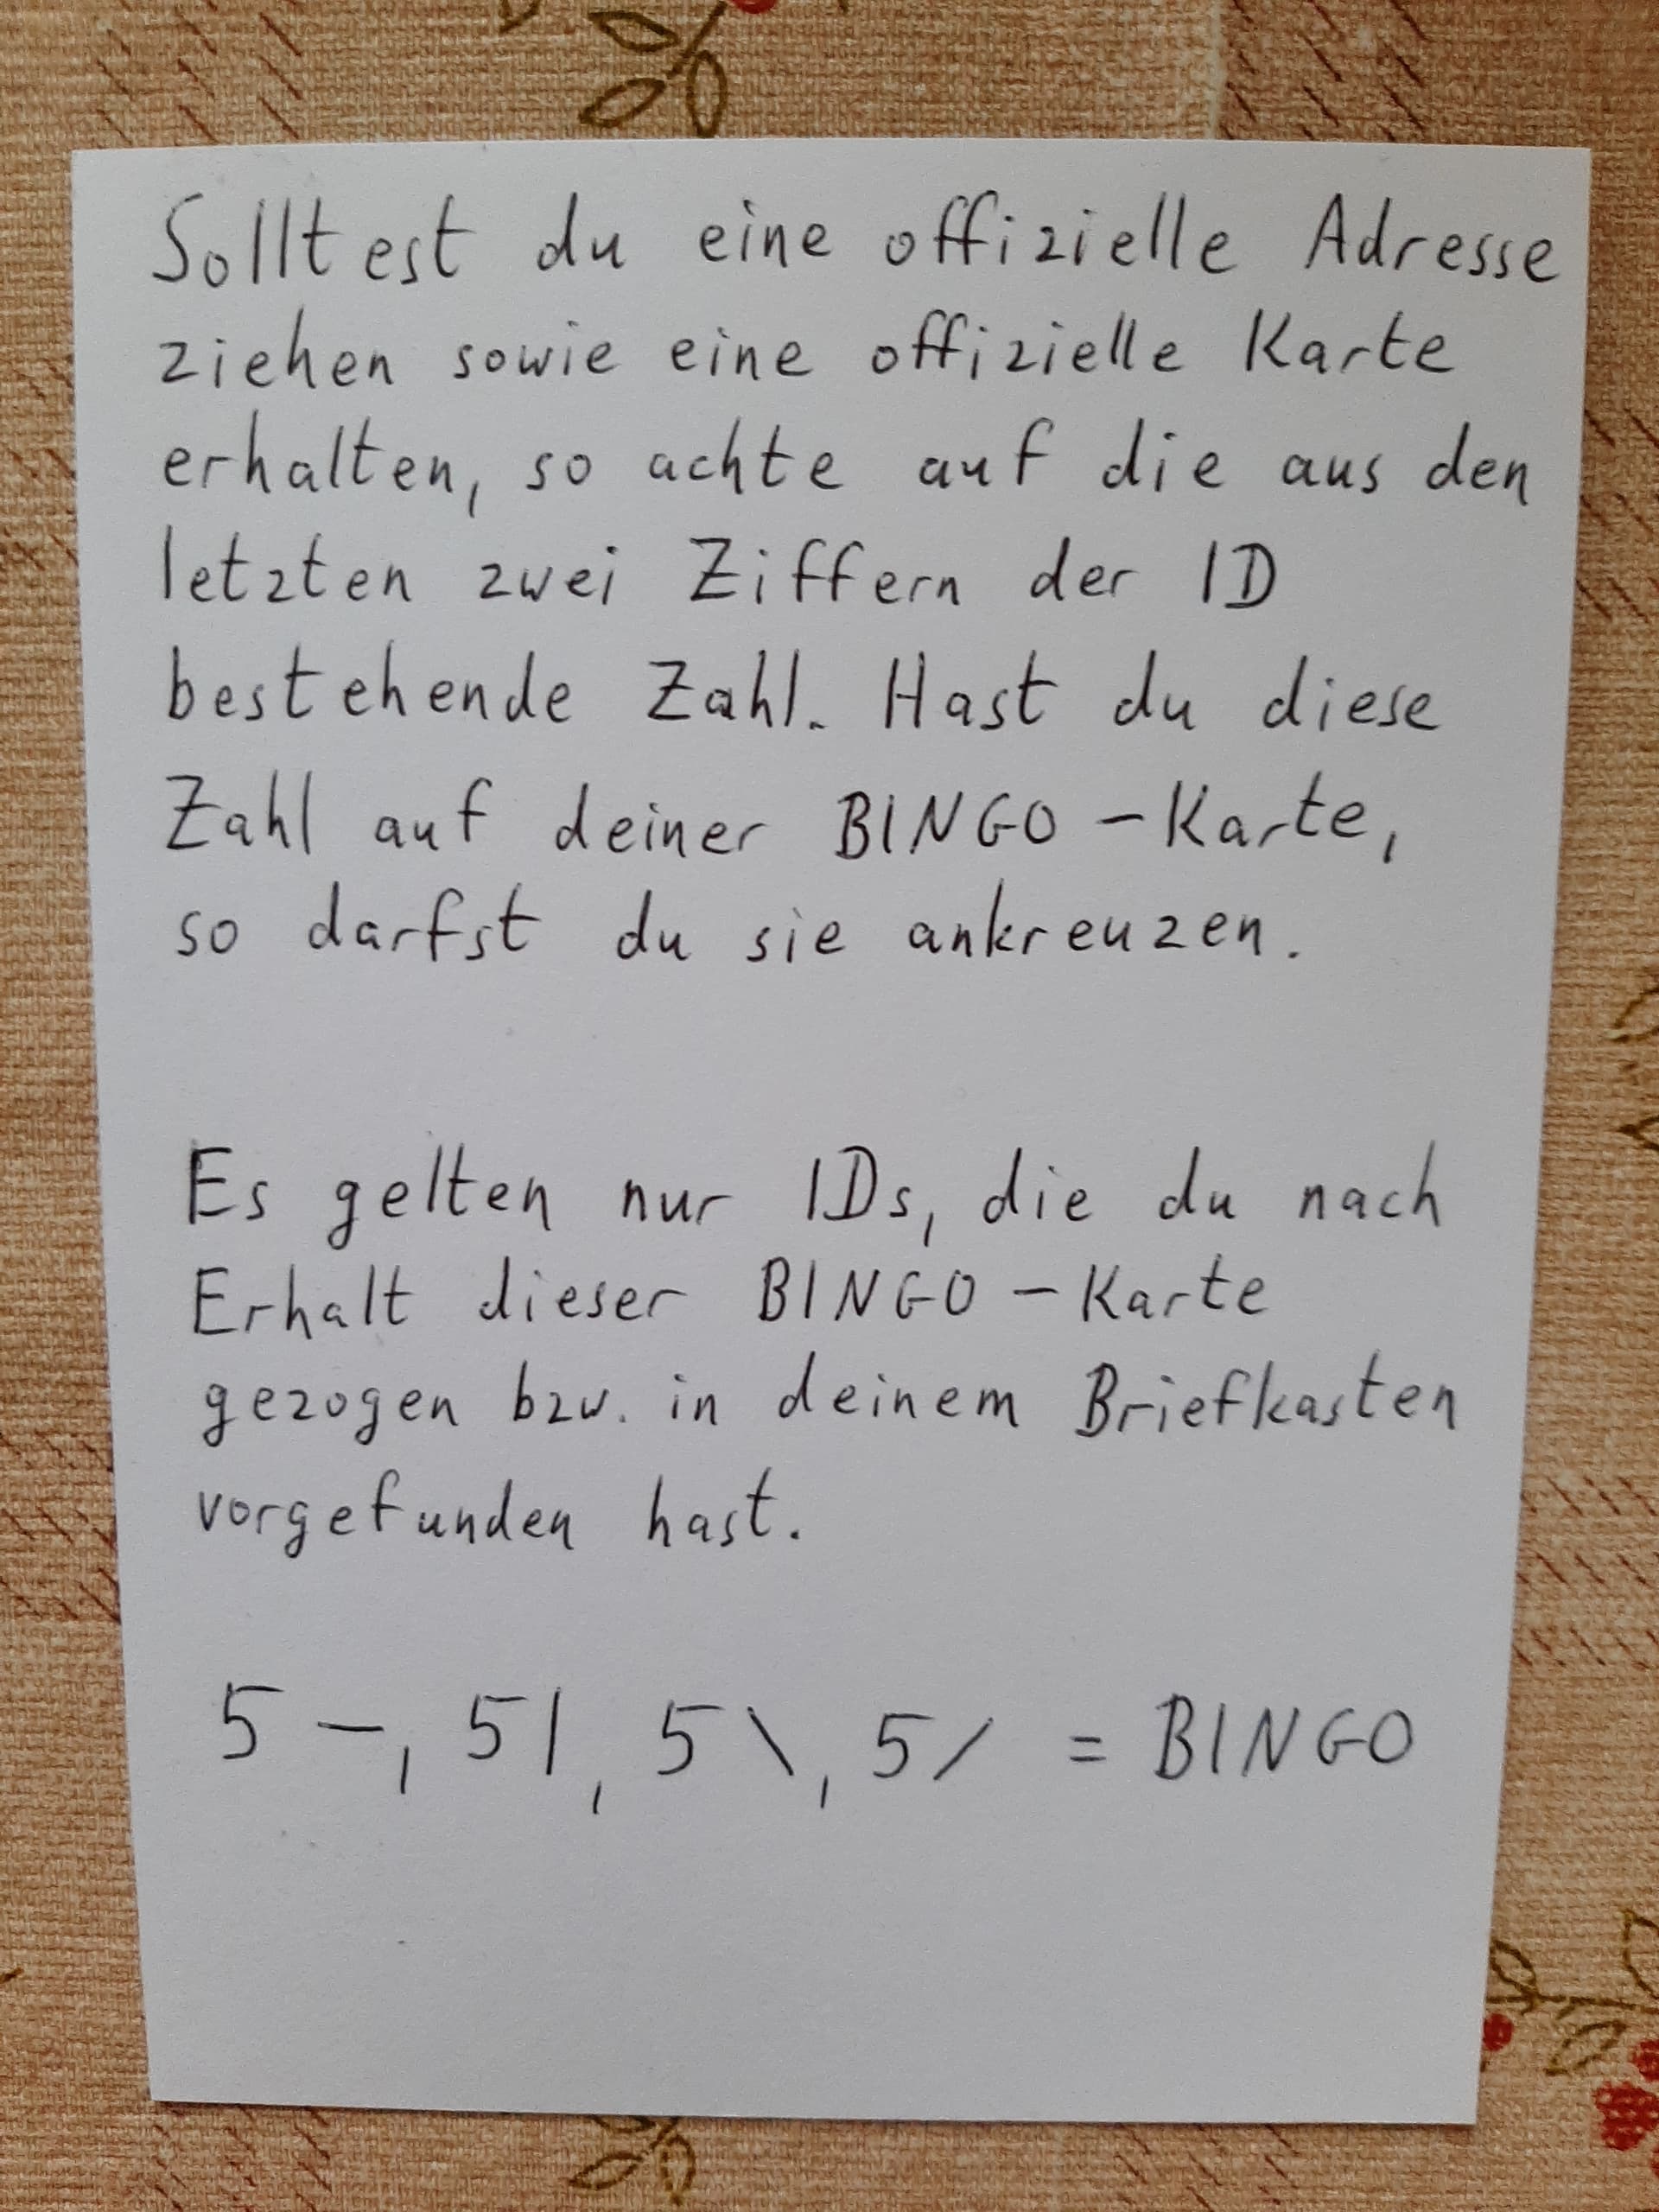 Solltest du eine offizielle Adresse
ziehen sowie eine offizielle Karte
erhalten, so achte auf die aus den
letzten zwei Ziffern der ID
bestehende Zahl. Hast du diese
Zahl auf deiner BINGO-Karte,
so darfst du sie ankreuzen.
Es gelten nur IDs, die du nach
Erhalt dieser BINGO-Karte
gezogen bzw. in deinem Briefkasten
vorgefunden hast.
5 –, 5 |, 5 \, 5 / = BINGO